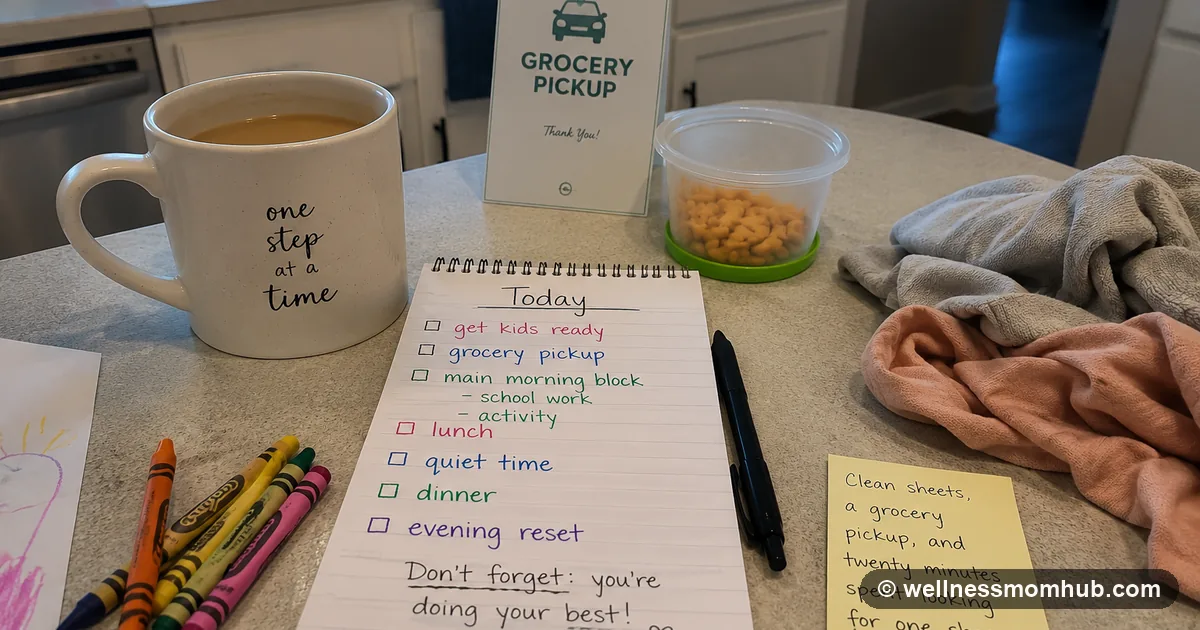 GROCERY
PICKUP
Thank You!
one
step
at a
time
Today
get kids ready
grocery pickup
main morning block
- school work
- activity
lunch
quiet time
dinner
evening reset
Don't forget: you're
doing your best!
Crayola
Clean sheets,
a grocery
pickup, and
twenty minutes
spent looking
for one
© wellnessmomhub.com